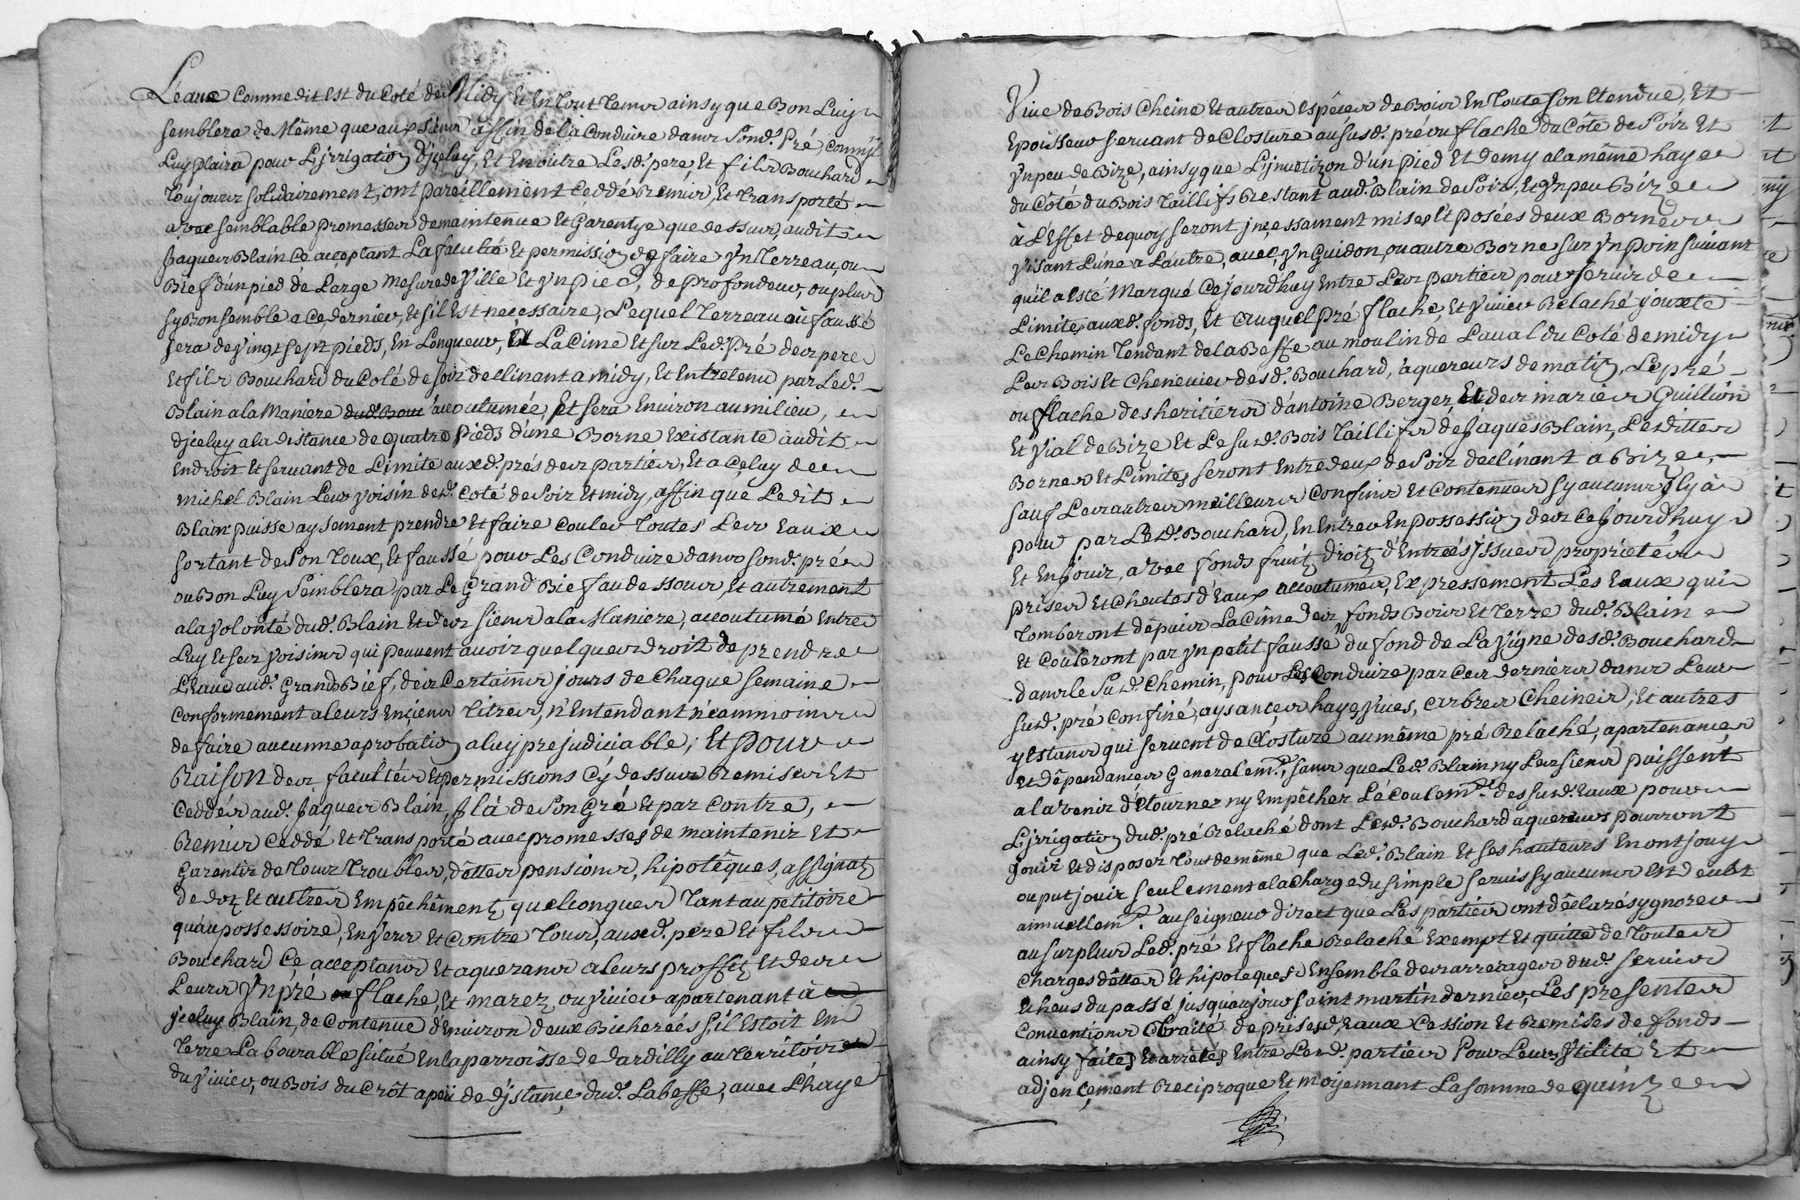 Leaue comme dit est du Coté de Midy Et En Tout Tems ainsy que Bon Luy
semblera de Même que aux siens affin de la Conduire dans sond. Pré, comm'il
Luy plaira pour L'jrrigation d'jceluy, Et En outre Lesd. pere Et fils Bouchard
Toujours solidairement, ont pareillement Ceddé Remis, Et Transporté
avec semblable promesse de maintenue Et Garentye que dessus, audit
Jaques Blain Ce acceptant La faculté Et permission de faire Yn Terreau, ou
Bief d'un pied de Large Mesure de Ville Et Yn pied, de profondeur, ou plus
sy Bon semble a Ce dernier, Et s'il Est necessaire, Lequel Terreau ou faussé
sera de Vingt sept pieds, En Longueur, Et La Cime Et sur Led. Pré des pere
Et fils Bouchard du Coté de soir declinant a midy, Et Entretenu par Led.
Blain a la Maniere accoutumée, Et sera Environ au milieu,
d'jceluy a la distance de quatre pieds d'une Borne Existante audit
Endroit Et servant de Limite auxd. prés des parties, Et a Celuy de
michel Blain Leur Voisin dud. Coté de soir Et midy, affin que Ledit
Blain puisse aysement prendre Et faire Couler Toutes Les Eaux
sortant de son Toux, Et faussé pour Les Conduire dans sond. pré
ou Bon Luy semblera par Le Grand Bief au dessous, Et autrement
a la Volonté dud. Blain Et des siens a la Maniere, accoutumé Entre
Luy Et ses Voisins qui peuvent avoir quelques droits de prendre
L'Eau aud. Grand Bief, des Certains jours de Chaque semaine
Conformement a leurs Enciens Titres, n'Entendant n'eammoins
de faire aucunne aprobation a luy prejudiciable; Et pour
Raison des facultés Et permissions Cy dessus Remises Et
Ceddés aud. Jaques Blain, Jl a de son Gré Et par Contre,
Remis Ceddé Et Transporté avec promesses de maintenir Et
Garentir de Tous Troubles, dettes pensions, hipotêques, assignat
de dot Et autres Empêchêment quelconques Tant au petitoire
qu'au possessoire, Envers Et Contre Tous, auxd. pere Et fils
Bouchard Ce acceptans Et aquerans a leurs proffit Et des
Leurs Yn pré ou flache, Et marez, ou Vivier apartenant à
jceluy Blain, de Contenue d'Environ deux Bicherées s'il Estoit En
Terre Labourable situé En la parroisse de dardilly au Territoire
du Vivier, ou Bois du Crôt a peu de distance dud. Labesse, avec L'haye
Vive de Bois Cheine Et autres Espêces de Bois En Toute son Etendue, Et
Epoisseur servant de Closture au susd. pré ou flache du Côté de Soir Et
Yn peu de Bize, ainsy que L'jnvetizon d'un pied Et demy a la même haye
du Coté du Bois Taillifs Restant aud. Blain de Soir, Et Yn peu Bize
à L'Effet de quoy seront jncessament mises Et posées deux Bornes
Visant L'une a L'autre, avec Yn Guidon, ou autre Borne sur Yn poin suivant
qu'il a Esté Marqué Cejourdhuy Entre Les parties pour servir de
Limites auxd. fonds, Et auquel Pré flache, Et Vivier Relaché jouxte
Le Chemin Tendant de la Besse au moulin de Laval du Coté de midy
Les Bois Et Chenevier desd. Bouchard, aquereurs de matin, Le pré
ou flache des heritiers d'antoine Berger, Et des maries Guillion
Et Vial de Bize Et Le susd. Bois Taillifs de Jaques Blain, Lesdittes
Bornes Et Limites seront Entre deux de soir declinant a Bize
sauf Les autres meilleurs Confins Et Contenues sy aucuns Il y a
pour par Lesd. Bouchard, En Entrer En possession des Cejourdhuy
Et En jouir, avec fonds fruit droit d'Entrées jssues proprietés
prises Et Cheutes d'Eaux accoutumés, Expressement Les Eaux qui
Tomberont depuis La Cîme des fonds Bois Et Terre dud. Blain
Et Couleront par Yn petit faussé du fond de La Vigne desd. Bouchard
dans le Susd. Chemin, pour Les Conduire par Ces derniers dans Leur
susd. pré Confiné, aysances hayes Vives, arbres Cheines, Et autres
y Estans qui servent de Closture au même pré Relaché, apartenances
Et dépendances Generalem.t, sans que Led. Blain ny Les siens puissent
a la venir détourner ny Empêcher Le Coulem.t desd. Eaux pour
L'jrrigation dud. pré Relaché dont Lesd. Bouchard aquereurs pourront
Jouir Et disposer Tout de même que Led. Blain Et ses hauteurs En ont jouy
ou put jouir seulement a la Charge du simple servis sy aucuns Est deubt
annuellem.t au seigneur direct que Les parties ont déclaré sygnorer
au surplus Led. pré Et flache Relaché Exempt Et quitte de Toutes
Charges dettes Et hipoteques Ensemble des arrerages dud. servis
Echeus du passé jusqu'au jour saint martin dernier, Les presentes
Conventions Traité de prisesd. Eaux Cession Et Remises de fonds
ainsy faites Et arrêtés Entre Lesd. parties pour Leurs Ytilité Et
adjencement Reciproque Et moyennant La somme de quinze